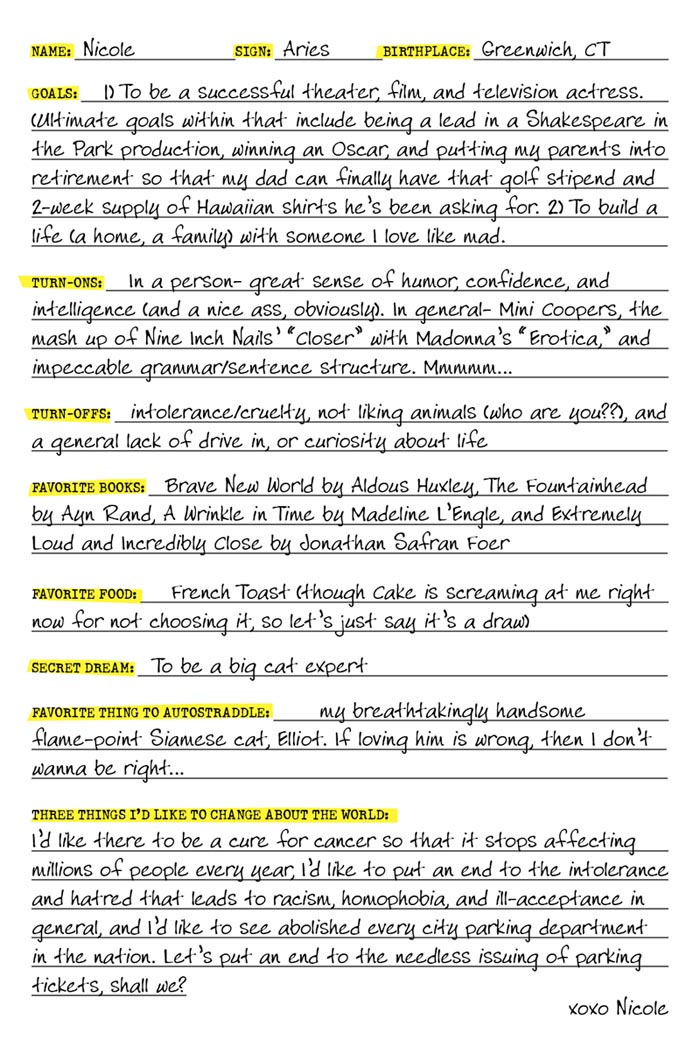 NAME: Nicole SIGN: Aries BIRTHPLACE: Greenwich, CT
GOALS: 1) To be a successful theater, film, and television actress.
(Ultimate goals within that include being a lead in a Shakespeare in
the Park production, winning an Oscar, and putting my parents into
retirement so that my dad can finally have that golf stipend and
2-week supply of Hawaiian shirts he's been asking for. 2) To build a
life (a home, a family) with someone I love like mad.
TURN-ONS: In a person- great sense of humor, confidence, and
intelligence (and a nice ass, obviously). In general- Mini Coopers, the
mash up of Nine Inch Nails' "Closer" with Madonna's "Erotica," and
impeccable grammar/sentence structure. Mmmmm...
TURN-OFFS: intolerance/cruelty, not liking animals (who are you??), and
a general lack of drive in, or curiosity about life
FAVORITE BOOKS: Brave New World by Aldous Huxley, The Fountainhead
by Ayn Rand, A Wrinkle in Time by Madeline L'Engle, and Extremely
Loud and Incredibly Close by Jonathan Safran Foer
FAVORITE FOOD: French Toast (though Cake is screaming at me right
now for not choosing it, so let's just say it's a draw)
SECRET DREAM: To be a big cat expert
FAVORITE THING TO AUTOSTRADDLE: my breathtakingly handsome
flame-point Siamese cat, Elliot. If loving him is wrong, then I don't
wanna be right...
THREE THINGS I'D LIKE TO CHANGE ABOUT THE WORLD:
I'd like there to be a cure for cancer so that it stops affecting
millions of people every year, I'd like to put an end to the intolerance
and hatred that leads to racism, homophobia, and ill-acceptance in
general, and I'd like to see abolished every city parking department
in the nation. Let's put an end to the needless issuing of parking
tickets, shall we?
xoxo Nicole